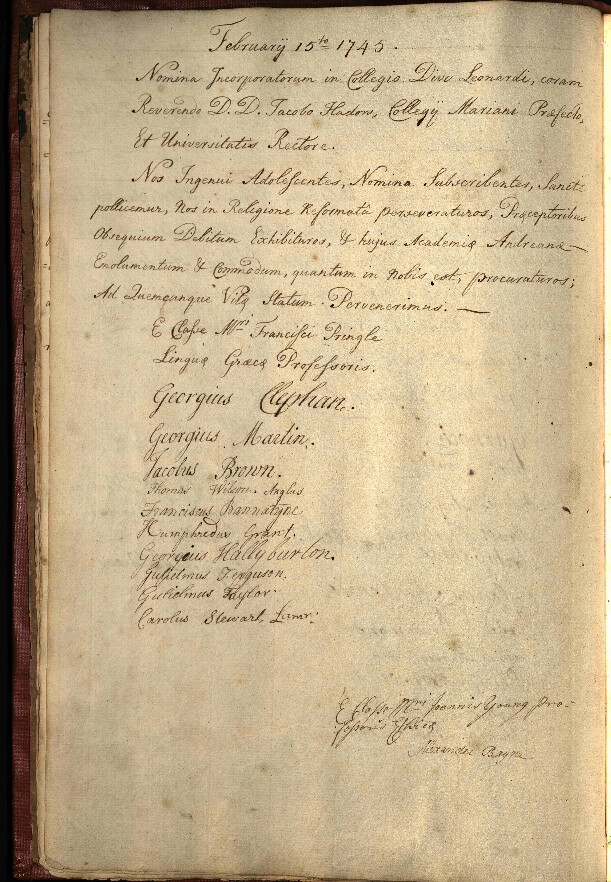 February 15to 1745.
Nomina Incorporatorum in Collegio Divi Leonardi, coram
Reverendo D. D. Jacobo Hadow, Collegij Mariani Præfecto,
Et Universitatis Rectore.
Nos Ingenui Adolescentes, Nomina Subscribentes, Sancte
pollicemur, Nos in Religione Reformatâ perseveraturos, Præceptoribus
Obsequium Debitum Exhibituros, & hujus Academiæ Andreanæ
Emolumentum & Commodum, quantum in Nobis est, procuraturos;
Ad Quemcunque Vitæ Statum Pervenerimus. —
E Classe Mri Francisci Pringle
Linguæ Græcæ Professoris.
Georgius Clephan.
Georgius Martin.
Jacobus Brown.
Thomas Wilson Anglus
Franciscus Bannatyne
Humphredus Grant.
Georgius Hallyburton.
Gulielmus Ferguson.
Gulielmus Taylor.
Carolus Stewart
E Classe Mri Joannis Young Pro-
fessoris Ethicæ
Alexander Bayne